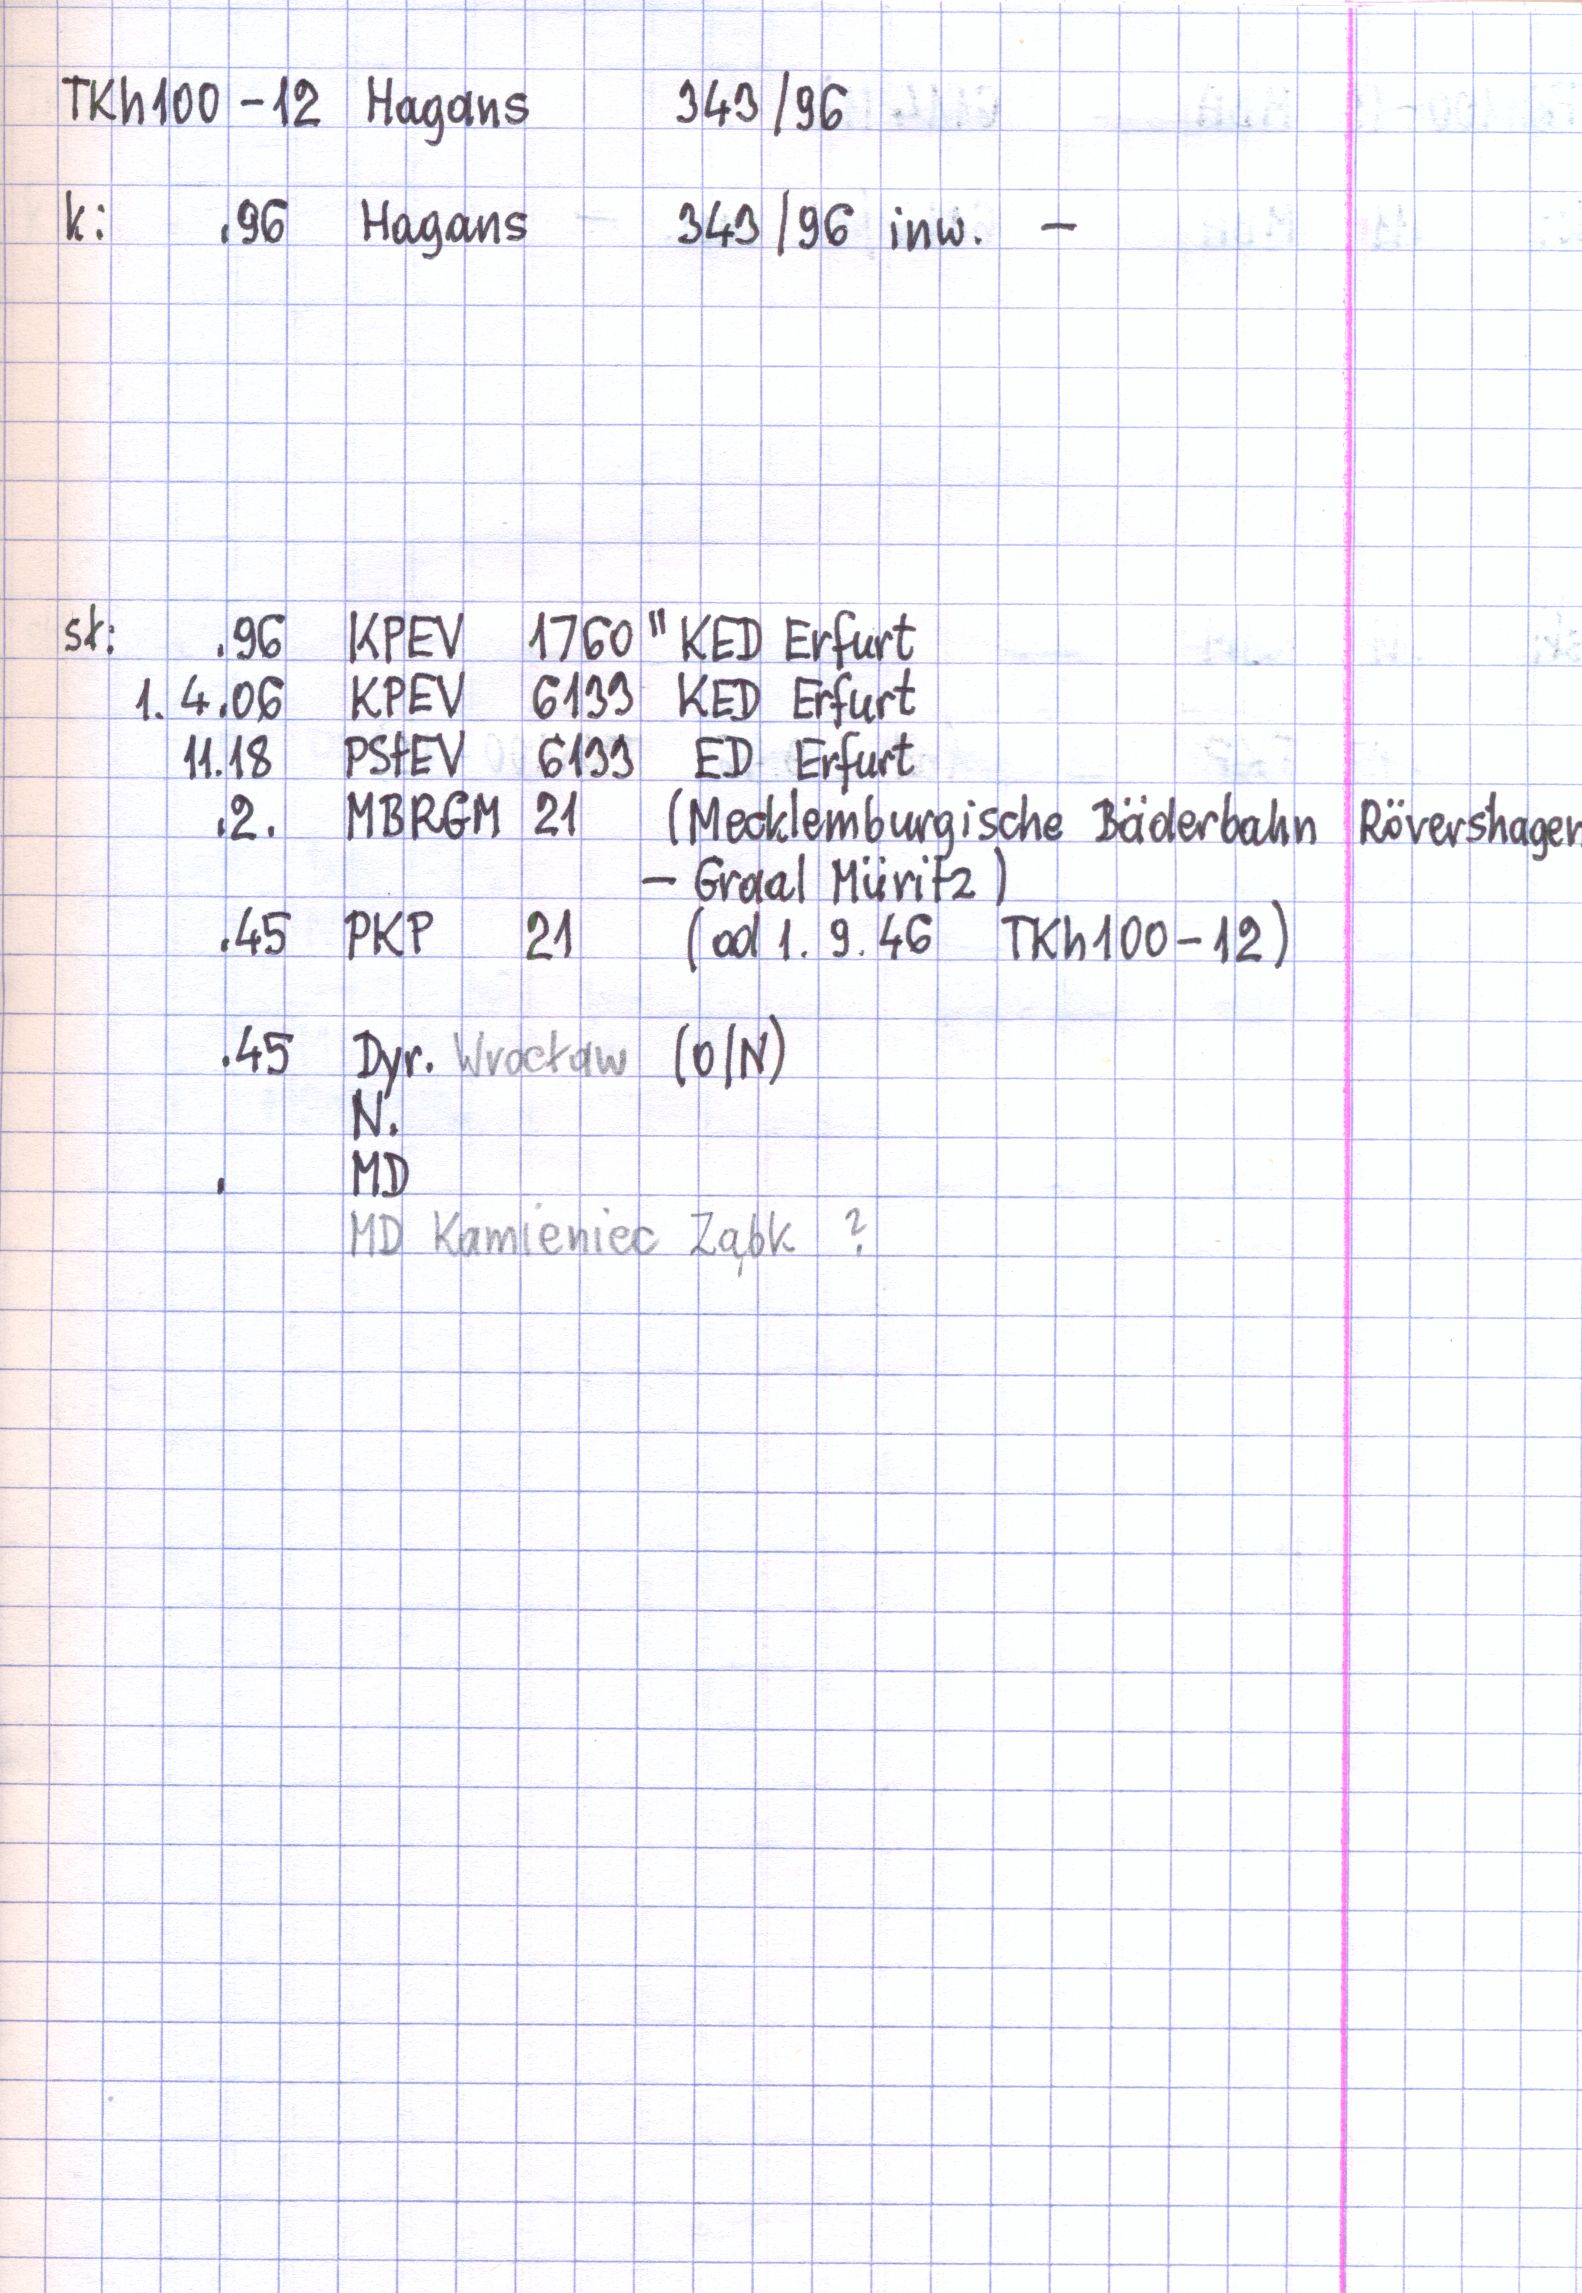 TKh100-12 Hagans 343/96
k: .96 Hagans 343/96 inw. -
st: .96 KPEV 1760" KED Erfurt
1.4.06 KPEV 6133 KED Erfurt
11.18 PStEV 6133 ED Erfurt
.2. MBRGM 21 (Mecklemburgische Bäderbahn Rövershagen
- Graal Müritz)
.45 PKP 21 (od 1.9.46 TKh100-12)
.45 Dyr. Wrocław (O/N)
N.
. MD
MD Kamieniec Ząbk ?